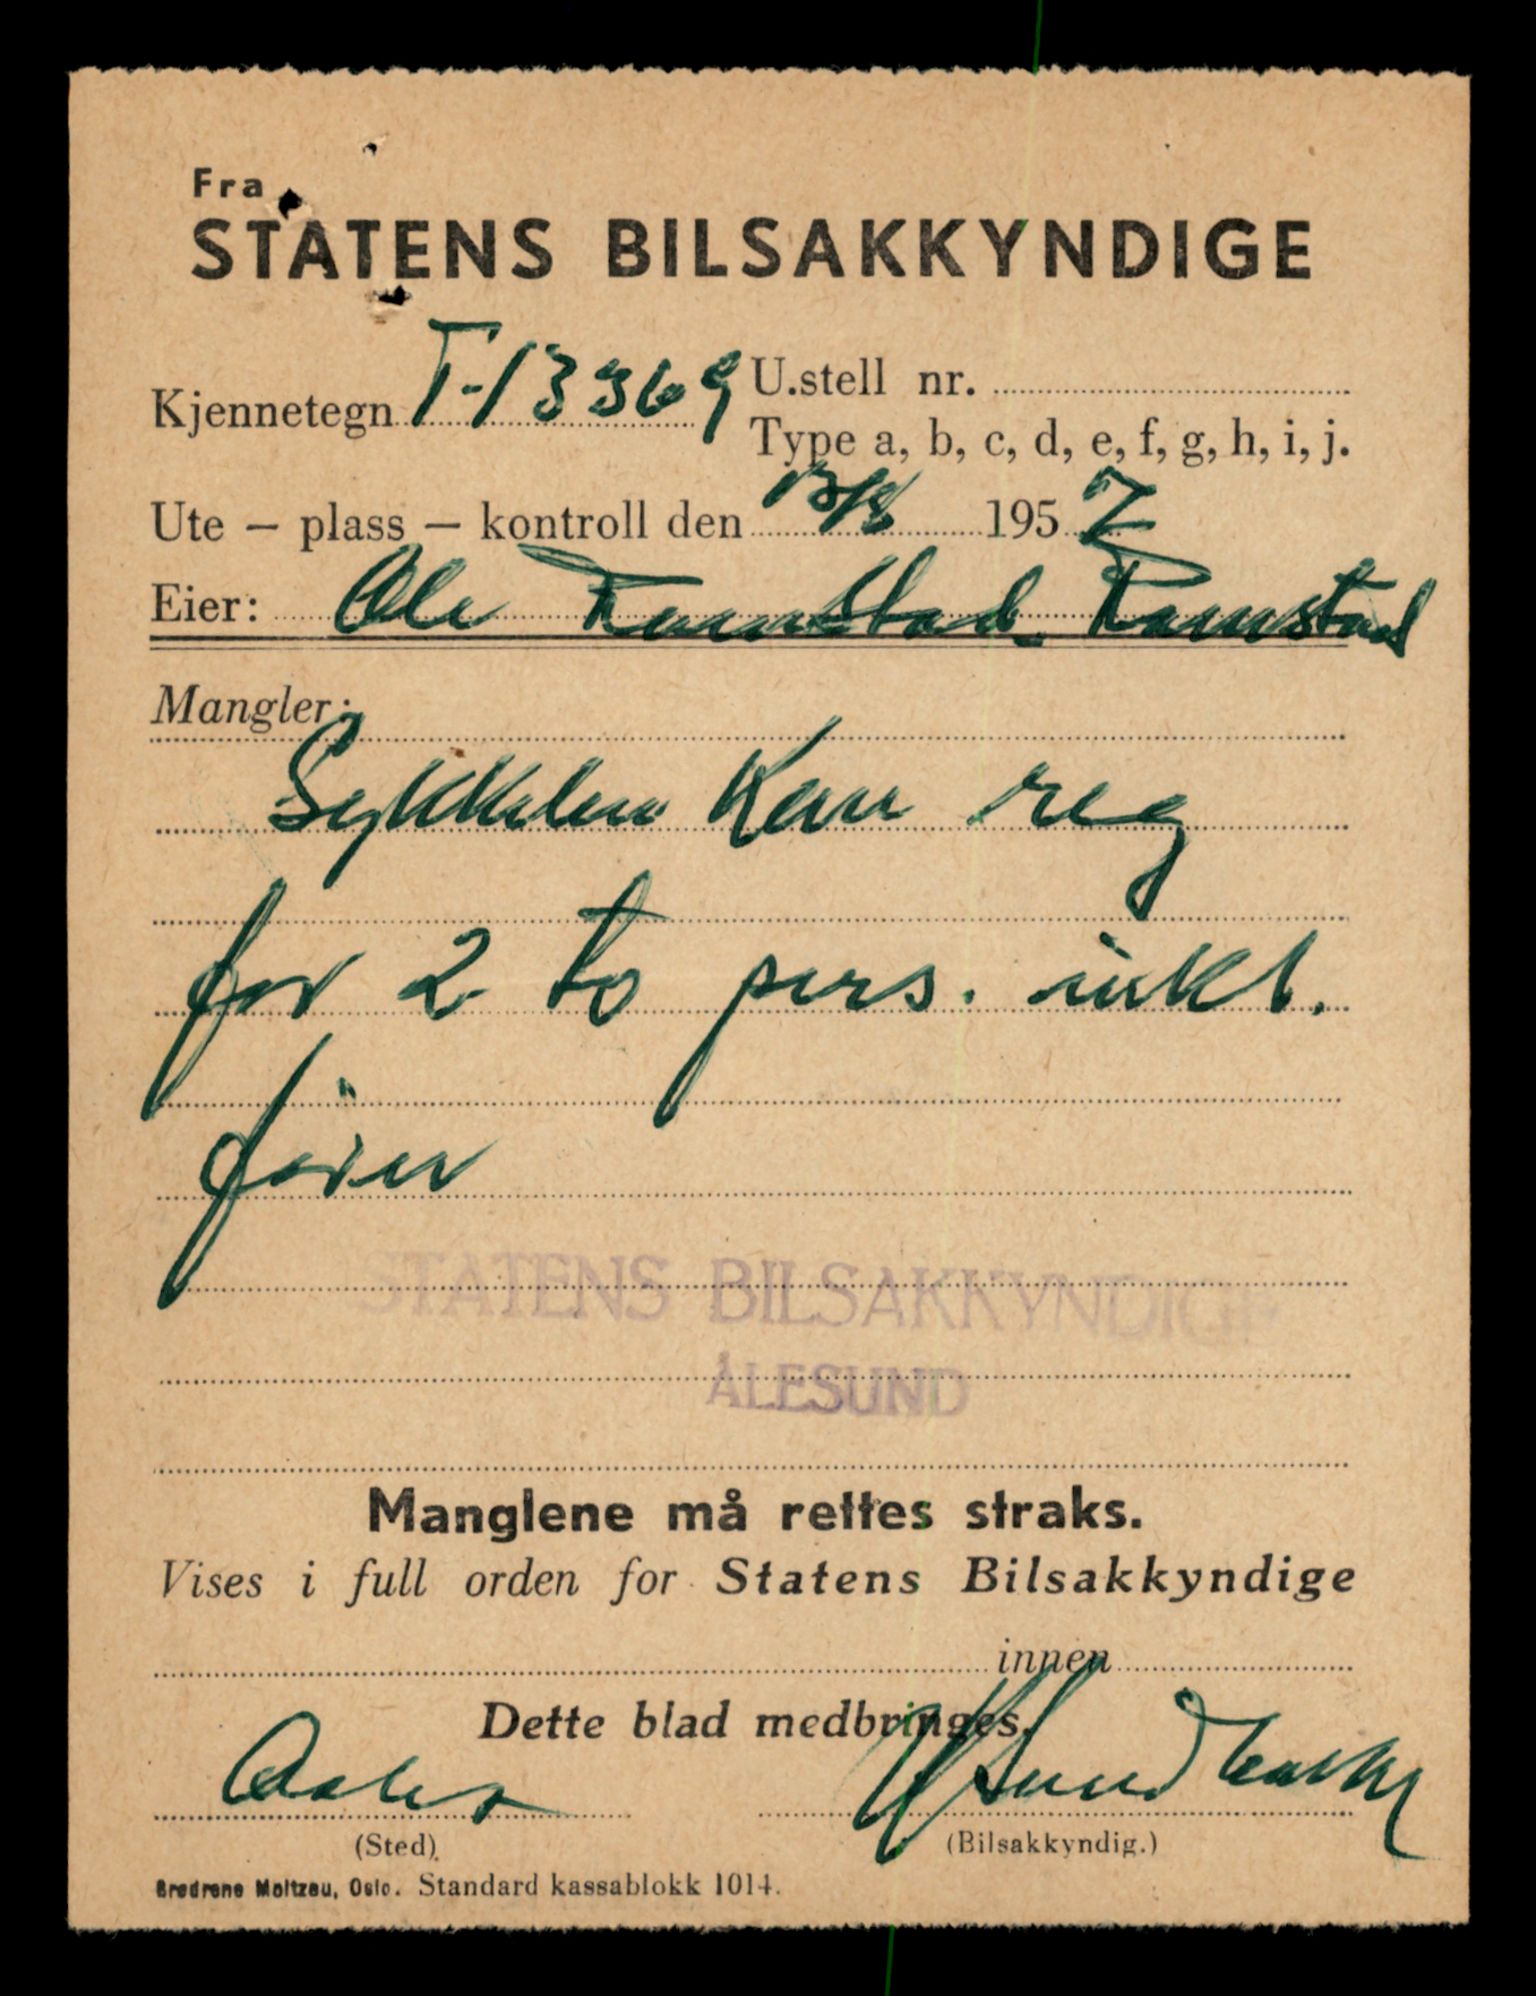 Fra
STATENS BILSAKKYNDIGE
Kjennetegn T-13369 U.stell nr.
Type a, b, c, d, e, f, g, h, i, j.
Ute – plass – kontroll den 13/8 1957
Eier: Ole Ramstad Ramstad
Mangler:
Sykkelen kan reg
for 2 to pers. inkl.
fører
STATENS BILSAKKYNDIGE
ÅLESUND
Manglene må rettes straks.
Vises i full orden for Statens Bilsakkyndige
innen
Dette blad medbringes.
(Sted) (Bilsakkyndig.)
Brødrene Moltzau, Oslo. Standard kassablokk 1014.